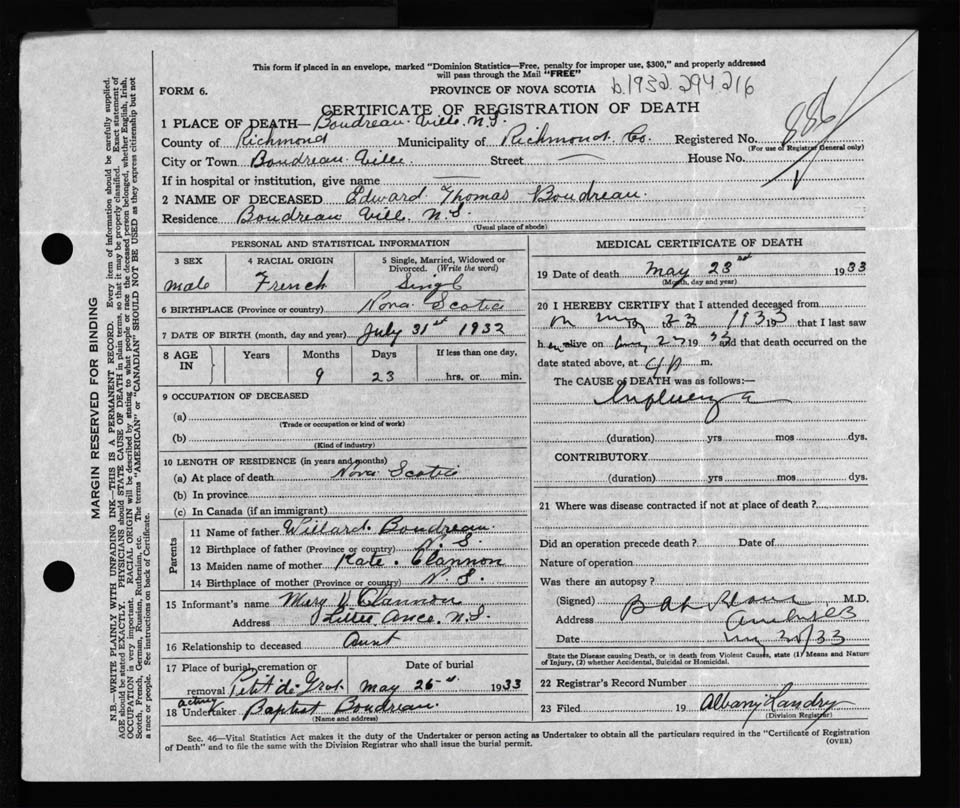 This form if placed in an envelope, marked "Dominion Statistics—Free, penalty for improper use, $300," and properly addressed
will pass through the Mail "FREE"
FORM 6.
PROVINCE OF NOVA SCOTIA b.1932.294216
CERTIFICATE OF REGISTRATION OF DEATH
886
1 PLACE OF DEATH— Boudreau Ville N.S.
County of Richmond Municipality of Richmond Co. Registered No.
(For use of Registrar General only)
City or Town Boudreau Ville Street — House No.
If in hospital or institution, give name —
2 NAME OF DECEASED Edward Thomas Boudreau.
Residence Boudreau Vill. N.S.
(Usual place of abode)
PERSONAL AND STATISTICAL INFORMATION
3 SEX 4 RACIAL ORIGIN 5 Single, Married, Widowed or
Divorced. (Write the word)
male French Singl
6 BIRTHPLACE (Province or country) Nova Scotia
7 DATE OF BIRTH (month, day and year) July 31st 1932
8 AGE
IN
Years Months Days If less than one day,
9 23 hrs. or min.
9 OCCUPATION OF DECEASED
(a)
(Trade or occupation or kind of work)
(b)
(Kind of industry)
10 LENGTH OF RESIDENCE (in years and months)
(a) At place of death Nova Scotia
(b) In province
(c) In Canada (if an immigrant)
Parents
11 Name of father Willard Boudreau.
12 Birthplace of father (Province or country) N.S.
13 Maiden name of mother Kate Clannon
14 Birthplace of mother (Province or country) N.S.
15 Informant's name Mary V Clannon
Address Little Ance. N.S.
16 Relationship to deceased Aunt
17 Place of burial, cremation or Date of burial
removal Petit de Grat May 26 1933
acting
18 Undertaker Baptist Boudreau.
(Name and address)
MEDICAL CERTIFICATE OF DEATH
19 Date of death May 23 1933
(Month, day and year)
20 I HEREBY CERTIFY that I attended deceased from
on May 23 1933 193 that I last saw
h alive on 19 and that death occurred on the
date stated above, at m.
The CAUSE of DEATH was as follows:—
Influenza
(duration) yrs mos dys.
CONTRIBUTORY.
(duration) yrs mos dys.
21 Where was disease contracted if not at place of death?
Did an operation precede death? Date of
Nature of operation
Was there an autopsy?
(Signed) M.D.
Address
Date /33
State the Disease causing Death, or in death from Violent Causes, state (1) Means and Nature
of Injury, (2) whether Accidental, Suicidal or Homicidal.
22 Registrar's Record Number
23 Filed 19 Albany Landry
(Division Registrar)
Sec. 46—Vital Statistics Act makes it the duty of the Undertaker or person acting as Undertaker to obtain all the particulars required in the "Certificate of Registration
of Death" and to file the same with the Division Registrar who shall issue the burial permit. (OVER)
MARGIN RESERVED FOR BINDING
N.B.—WRITE PLAINLY WITH UNFADING INK—THIS IS A PERMANENT RECORD. Every item of information should be carefully supplied.
AGE should be stated EXACTLY. PHYSICIANS should STATE CAUSE OF DEATH in plain terms, so that it may be properly classified. Exact statement of
OCCUPATION is very important. RACIAL ORIGIN will be described by stating to what people or race the deceased person belonged, whether English, Irish,
Scotch, French, German, Russian, Ruthenian, etc. The terms "AMERICAN" or "CANADIAN" SHOULD NOT BE USED as they express citizenship but not
a race or people. See instructions on back of Certificate.